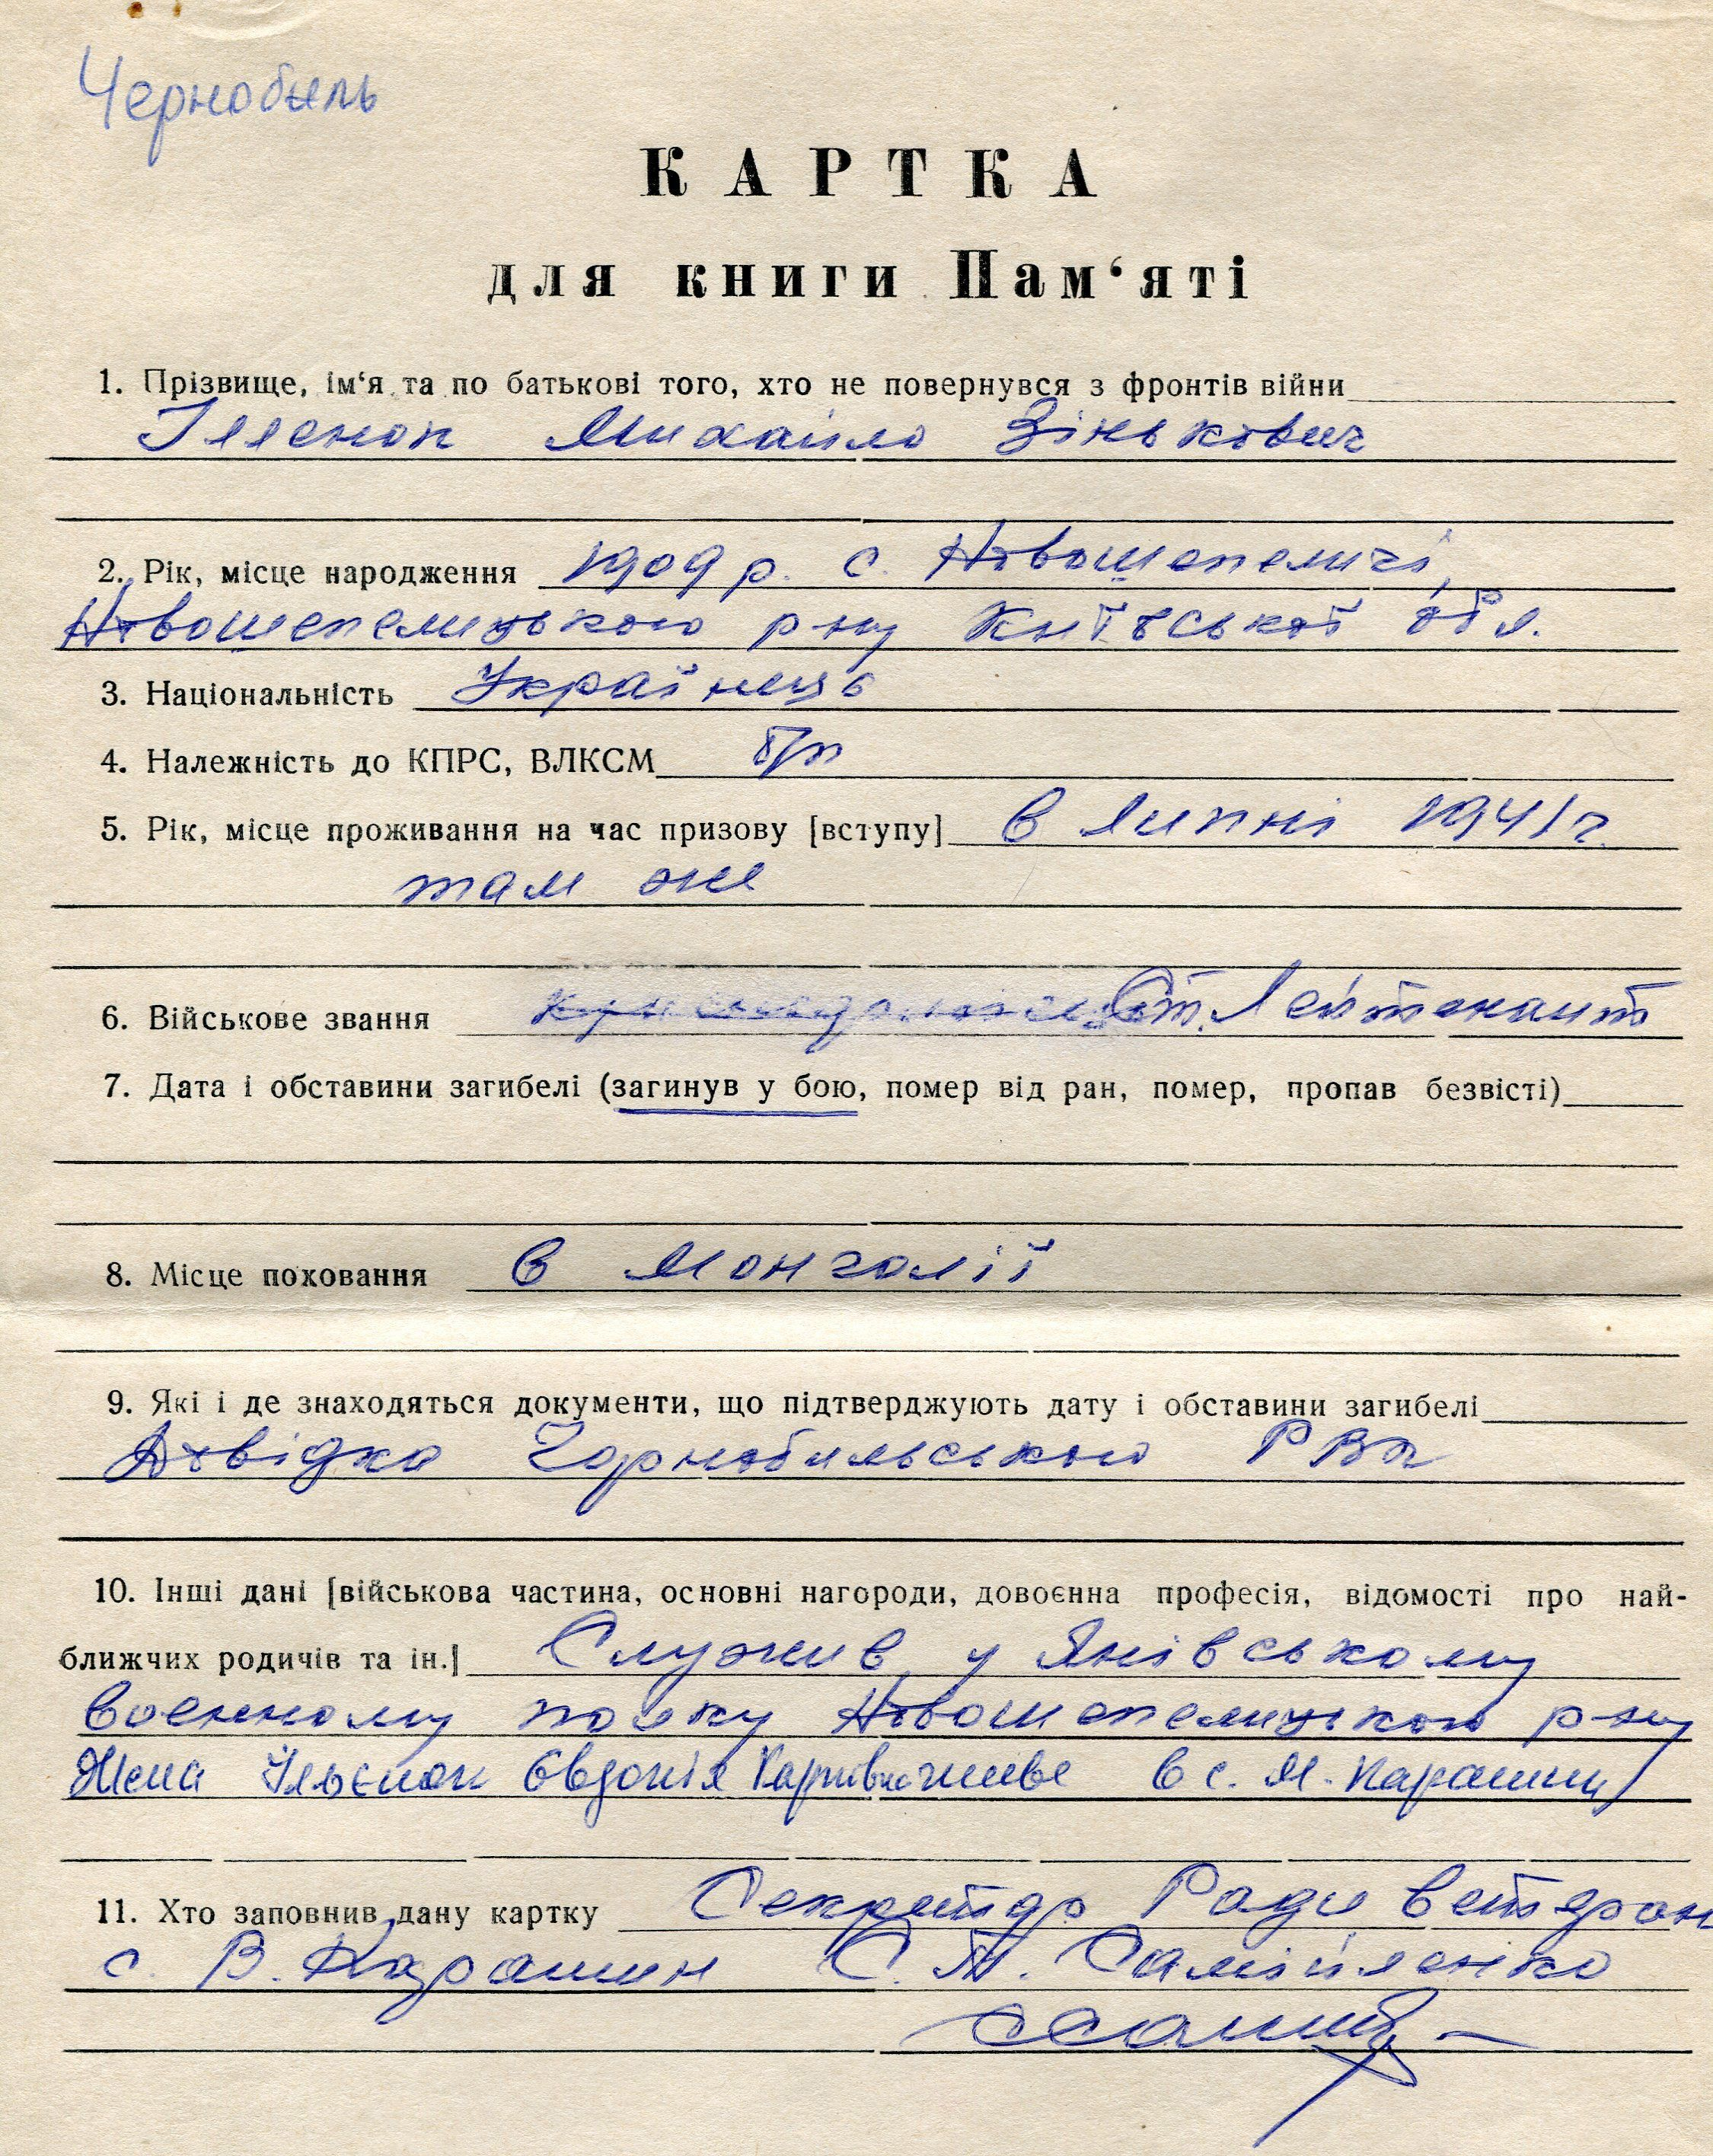 Чернобыль
КАРТКА
для книги Пам‘яті
1. Прізвище, ім‘я та по батькові того, хто не повернувся з фронтів війни
Ілєнок Михайло Зінькович
2. Рік, місце народження 1909 р. с. Новошепеличі,
Новошепелицького р-ну Київської обл.
3. Національність Українець
4. Належність до КПРС, ВЛКСМ б/п
5. Рік, місце проживання на час призову [вступу] в липні 1941 г.
там же
6. Військове звання Ст. Лейтенант
7. Дата і обставини загибелі (загинув у бою, помер від ран, помер, пропав безвісті)
8. Місце поховання в Монголії
9. Які і де знаходяться документи, що підтверджують дату і обставини загибелі
Довідка Чорнобильського РВК
10. Інші дані [військова частина, основні нагороди, довоєнна професія, відомості про най-
ближчих родичів та ін.] Служив у Янівському
военному полку Новошепелицького р-ну
Жена Ільєнок Евдокія Карпівна живе в с. М. Карашин
11. Хто заповнив дану картку Секретар Ради ветеран
с. В. Карашин С. П. Самійленко